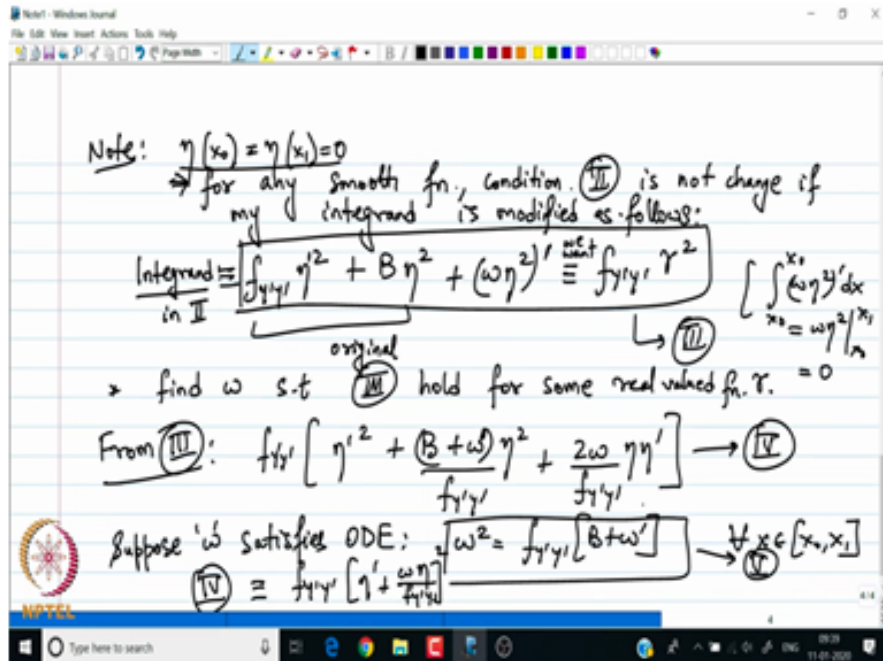 Note1 - Windows Journal
File Edit View Insert Actions Tools Help
Page Width
Note: η(x₀) = η(x₁) = 0
⇒ for any smooth fn., condition (II) is not change if
my integrand is modified as follows:
Integrand in II ≡ f_{y'y'} η'² + B η² + (ωη²)' ≡ (we want) f_{y'y'} r²
original
→ (III)
[ ∫_{x₀}^{x₁} (ωη²)' dx
= ωη² |_{x₀}^{x₁}
= 0
* find ω s.t (III) hold for some real valued fn. r.
From (III): f_{y'y'} [ η'² + (B + ω')/f_{y'y'} η² + 2ω/f_{y'y'} ηη' ] → (IV)
Suppose 'ω' satisfies ODE: ω² = f_{y'y'} [B + ω'] → (V) ∀ x ∈ [x₀, x₁]
(IV) ≡ f_{y'y'} [ η' + ωη/f_{y'y'} ]²
NPTEL
4/4
4
Type here to search
ENG
09:39
11-01-2020